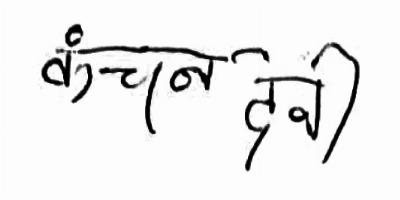 कंचन देवी